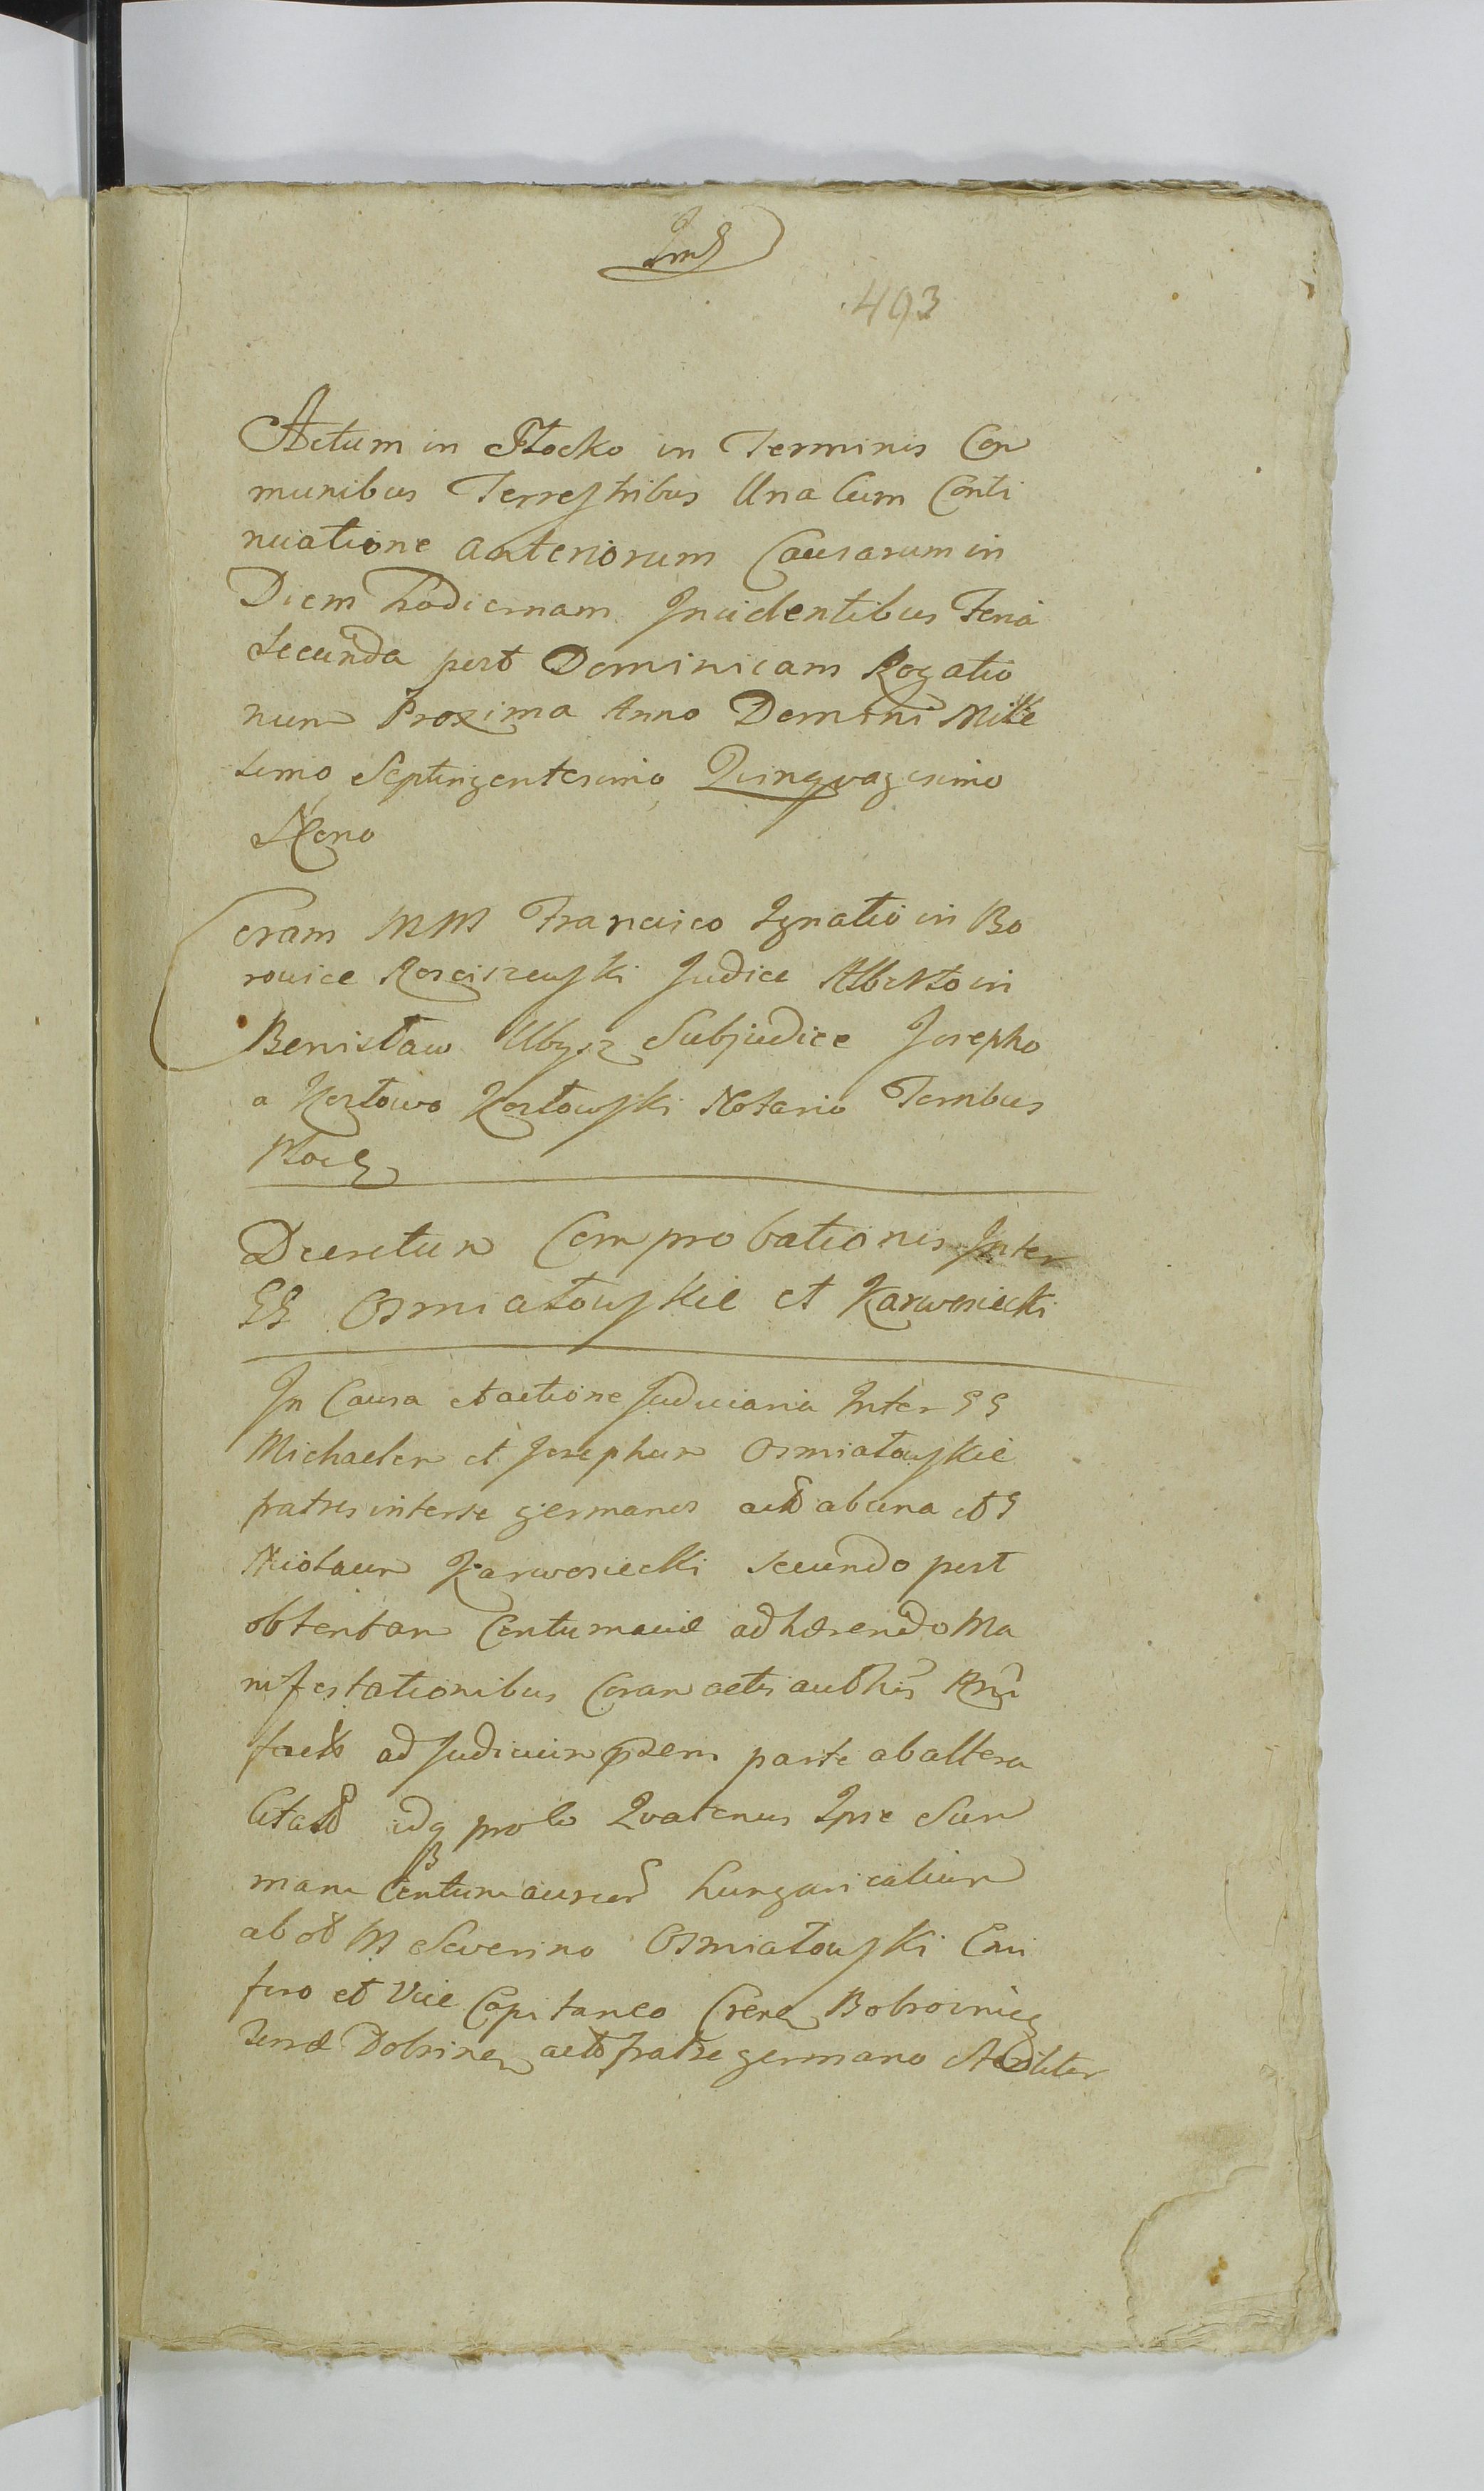 493
Actum in Płocko in Terminis Con
munibus Terrestribus Una Cum Conti
nuatione anteriorum Causarum in
Diem hodiernam Incidentibus Feria
Secunda post Dominicam Rogatio
num Proxima Anno Domini Mille
simo Septingentesimo Quinquagesimo
Nono
Coram MM Francisco Ignatio in Bo
rowice Rosciszewski Judice Alberto in
Benisław Ubysz Subjudice Josepho
a Kozłowo Kozłowski Notario Terribus
Ploc
Decretum Comprobationis Inter
GG Osmiałowskie et Karwosiecki
In Causa et actione Judiciaria Inter GG
Michaelem et Josephum Osmiałowskie
fratres inter se germanos ab una et G
Karwosiecki secundo post
obtentam Contumaciae adhaerendo Ma
nifestationibus Coram actis authis
ad Judicium parte ab altera
idq Quatenus Ipse Sum
mam Centum aureor hungaricalium
ab M Severino Osmiałowski Ensi
fero et Vice Capitaneo Bobrownic
Terrae Dobrinen fratre germano